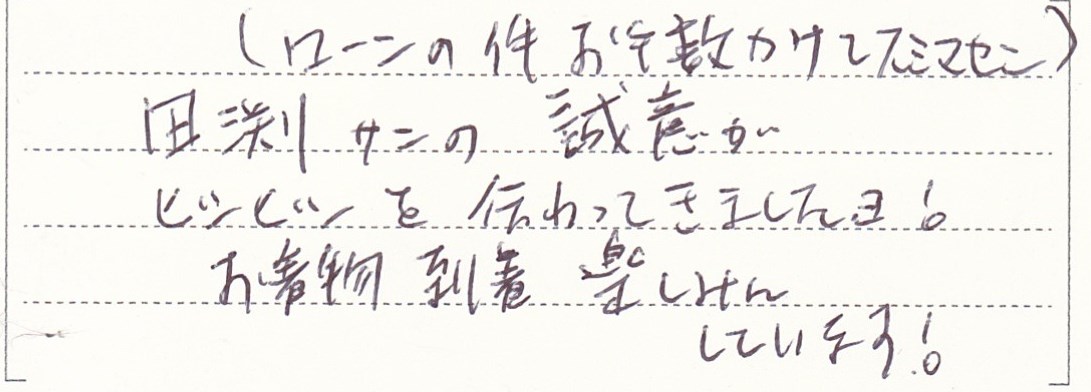 (ローンの件 お手数かけてスミマセン)
田渕サンの 誠意が
ビンビンと 伝わってきましたヨ!
お着物 到着 楽しみに
しています!